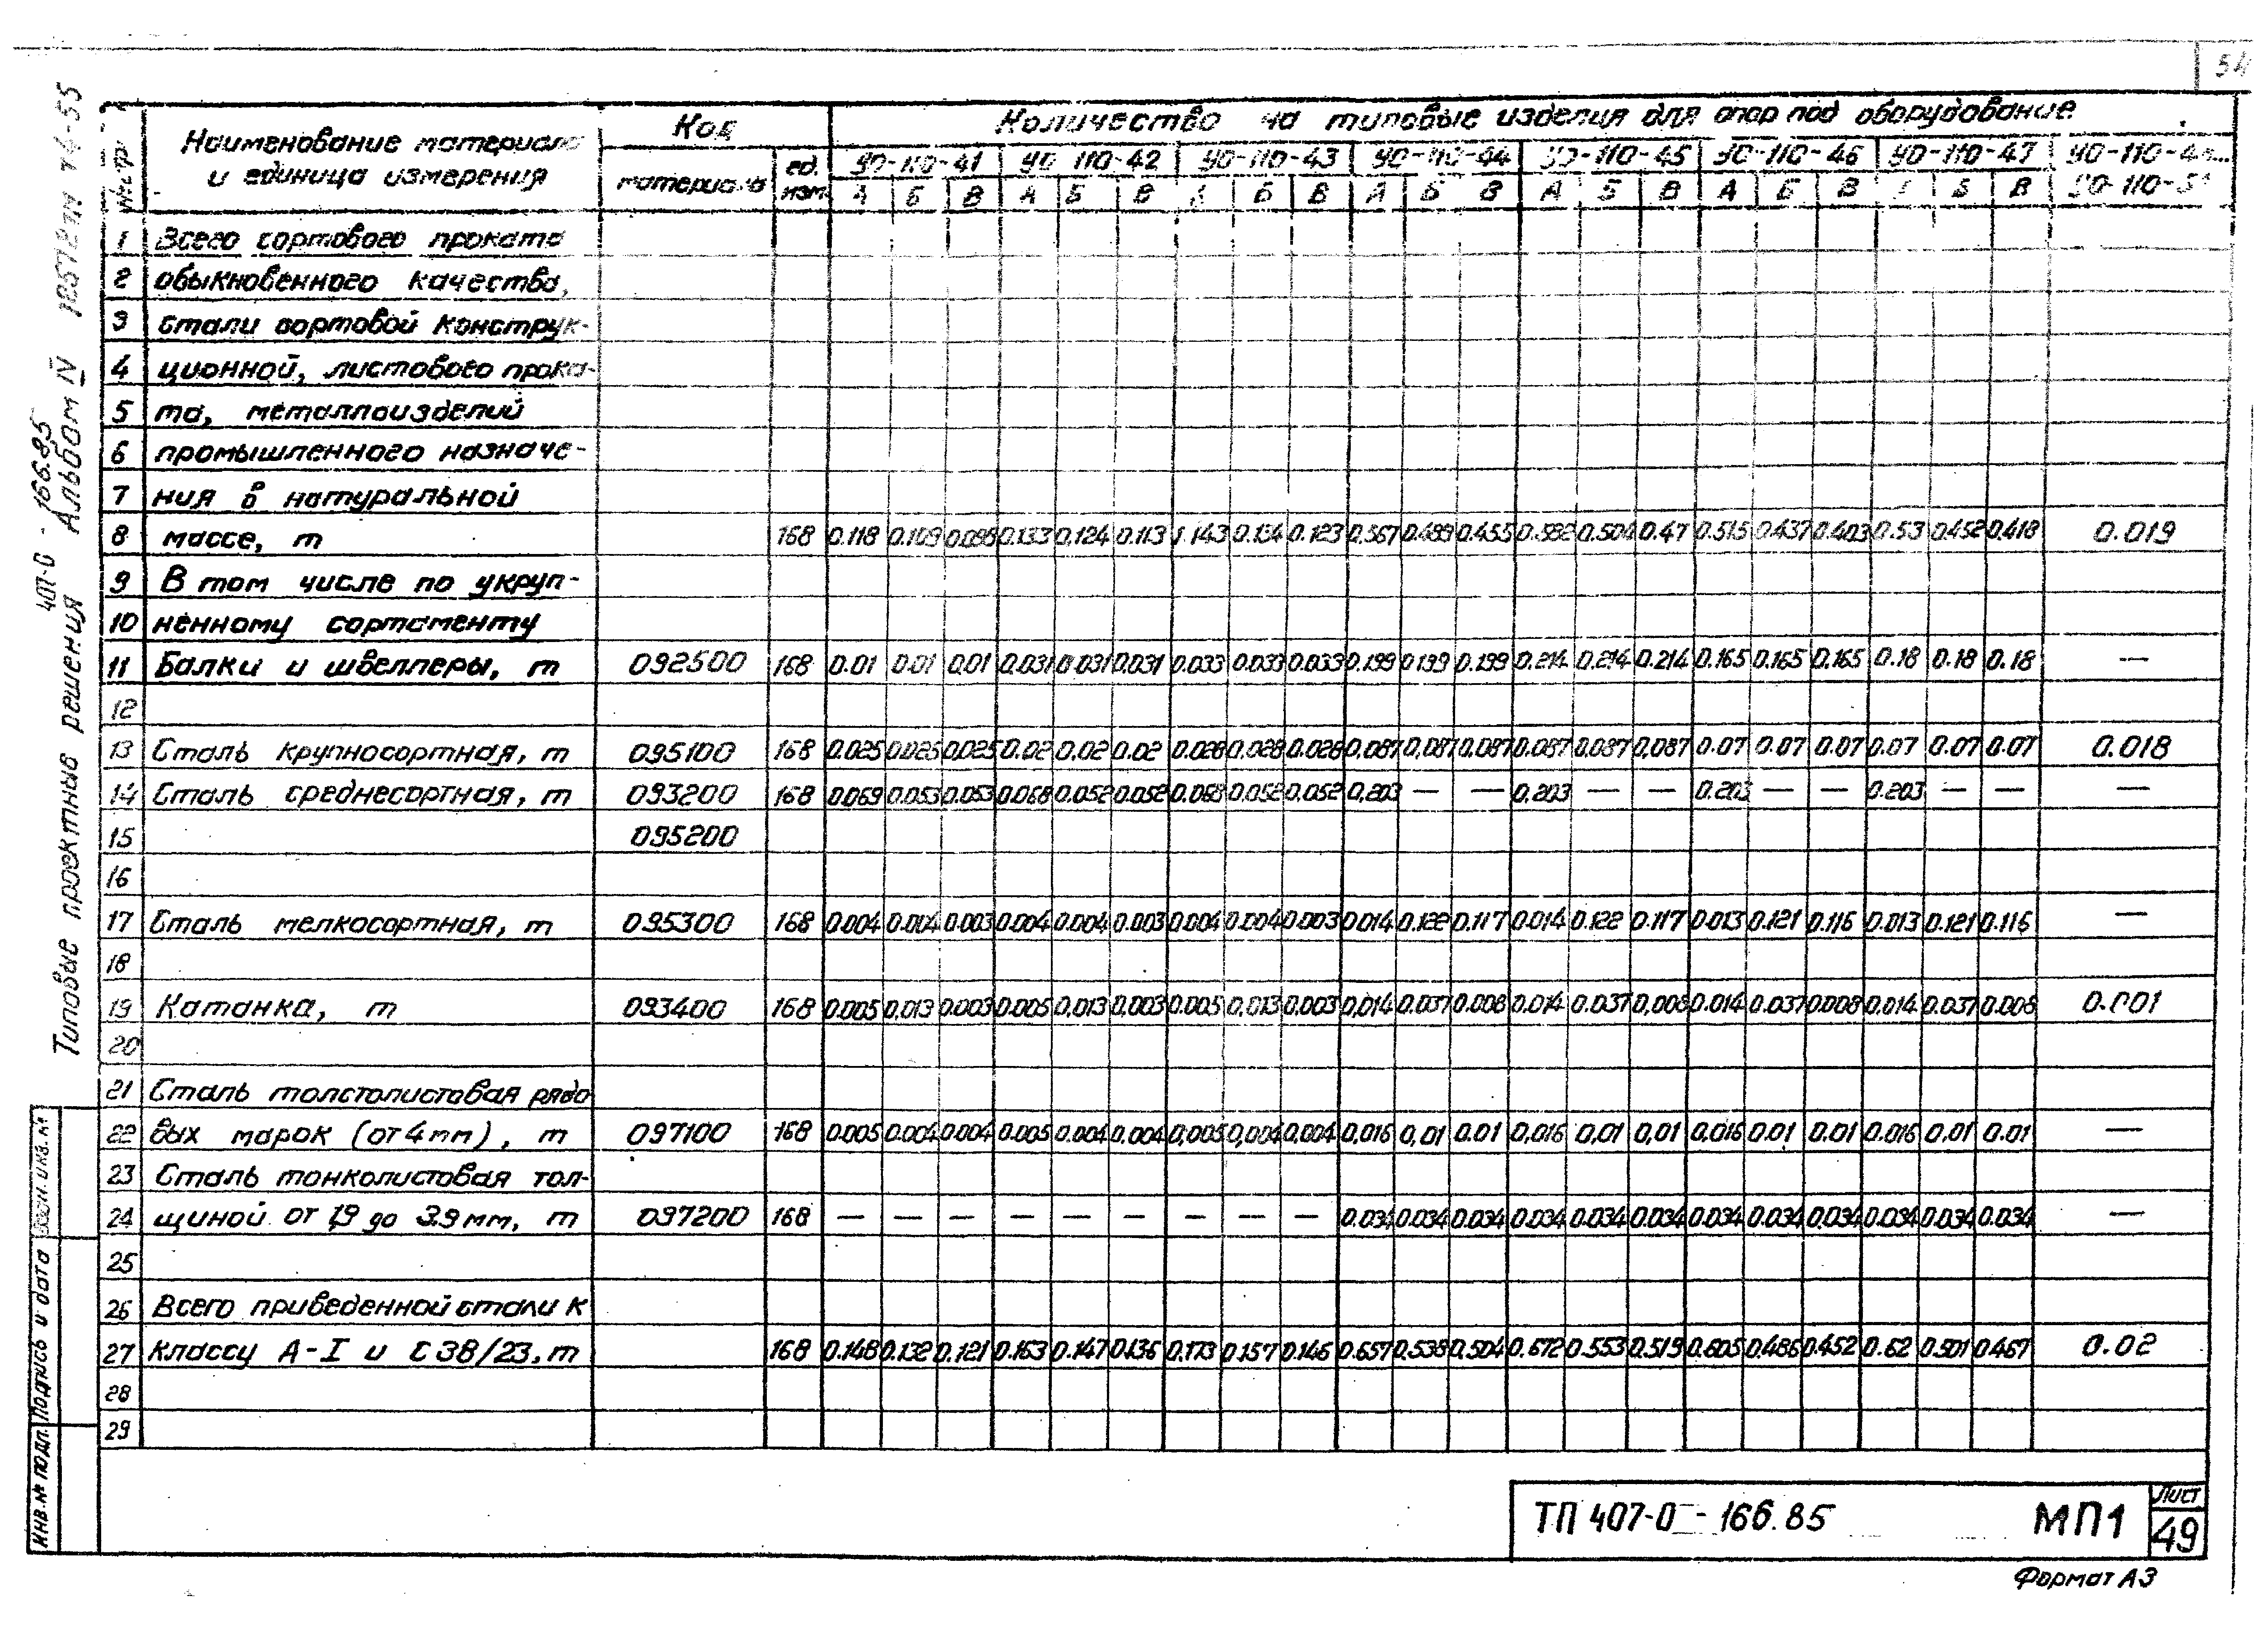 54
Типовые проектные решения Альбом IV
407-0-166.85
№ стр.
Наименование материала и единица измерения
Код
Количество на типовые изделия для опор под оборудование
материала
ед. изм.
УО-110-41 УО-110-42 УО-110-43 УО-110-44 УО-110-45 УО-110-46 УО-110-47
А Б В А Б В А Б В А Б В А Б В А Б В А Б В
1 Всего сортового проката
2 обыкновенного качества,
3 стали сортовой конструк-
4 ционной, листового прока-
5 та, металлоизделий
6 промышленного назначе-
7 ния в натуральной
8 массе, т 168 0.118 0.109 0.098 0.133 0.124 0.113 0.143 0.134 0.123 0.567 0.489 0.455 0.582 0.504 0.47 0.515 0.437 0.403 0.53 0.452 0.418 0.019
9 В том числе по укруп-
10 ненному сортаменту
11 Балки и швеллеры, т 092500 168 0.01 0.01 0.01 0.031 0.031 0.031 0.033 0.033 0.033 0.199 0.199 0.199 0.214 0.214 0.214 0.165 0.165 0.165 0.18 0.18 0.18 —
12
13 Сталь крупносортная, т 095100 168 0.025 0.025 0.025 0.02 0.02 0.02 0.028 0.028 0.028 0,087 0,087 0.087 0.087 0.087 0,087 0.07 0.07 0.07 0.07 0.07 0.07 0.018
14 Сталь среднесортная, т 093200 168 0.069 0.053 0.053 0.068 0.052 0.052 0.068 0.052 0.052 0,203 — — 0.203 — — 0.203 — — 0.203 — — —
15 095200
16
17 Сталь мелкосортная, т 095300 168 0.004 0.004 0.003 0.004 0.004 0.003 0.004 0.004 0.003 0.014 0.122 0.117 0.014 0.122 0.117 0.013 0.121 0.116 0.013 0.121 0.116 —
18
19 Катанка, т 093400 168 0.005 0,013 0.003 0.005 0,013 0,003 0.005 0,013 0.003 0,014 0.037 0.008 0.014 0.037 0,008 0.014 0.037 0.008 0,014 0.037 0.008 0.001
20
21 Сталь толстолистовая рядо
22 вых марок (от 4 мм), т 097100 168 0.005 0.004 0.004 0.005 0.004 0.004 0,005 0,004 0.004 0,016 0,01 0.01 0,016 0,01 0,01 0.016 0.01 0.01 0.016 0.01 0.01 —
23 Сталь тонколистовая тол-
24 щиной от 1,9 до 3.9 мм, т 097200 168 — — — — — — — — — 0.034 0.034 0.034 0.034 0.034 0.034 0.034 0.034 0.034 0.034 0.034 0.034 —
25
26 Всего приведенной стали к
27 классу А-I и С38/23, т 168 0.148 0.132 0.121 0.163 0.147 0.136 0.173 0.157 0.146 0.657 0.538 0.504 0.672 0.553 0.519 0.605 0.486 0.452 0.62 0.501 0.467 0.02
28
29
Взам. инв. №
Подпись и дата
Инв. № подл.
ТП 407-0-166.85 МП1
Лист
49
Формат А3